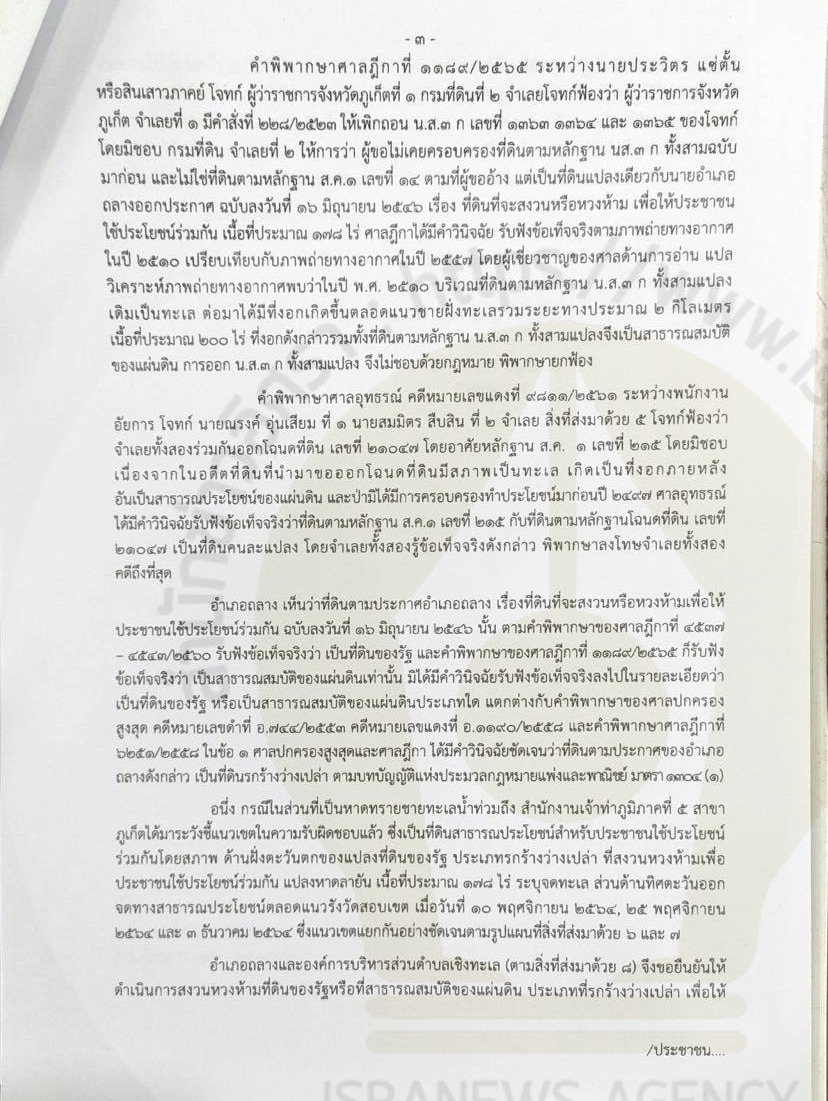 - ๓ -
คำพิพากษาศาลฎีกาที่ ๑๑๘๙/๒๕๖๕ ระหว่างนายประวิตร แซ่ตั้น
หรือสินเสาวภาคย์ โจทก์ ผู้ว่าราชการจังหวัดภูเก็ตที่ ๑ กรมที่ดินที่ ๒ จำเลยโจทก์ฟ้องว่า ผู้ว่าราชการจังหวัด
ภูเก็ต จำเลยที่ ๑ มีคำสั่งที่ ๒๒๘/๒๕๒๓ ให้เพิกถอน น.ส.๓ ก เลขที่ ๑๓๖๓ ๑๓๖๔ และ ๑๓๖๕ ของโจทก์
โดยมิชอบ กรมที่ดิน จำเลยที่ ๒ ให้การว่า ผู้ขอไม่เคยครอบครองที่ดินตามหลักฐาน นส.๓ ก ทั้งสามฉบับ
มาก่อน และไม่ใช่ที่ดินตามหลักฐาน ส.ค.๑ เลขที่ ๑๔ ตามที่ผู้ขออ้าง แต่เป็นที่ดินแปลงเดียวกับนายอำเภอ
ถลางออกประกาศ ฉบับลงวันที่ ๑๖ มิถุนายน ๒๕๔๖ เรื่อง ที่ดินที่จะสงวนหรือหวงห้าม เพื่อให้ประชาชน
ใช้ประโยชน์ร่วมกัน เนื้อที่ประมาณ ๑๗๘ ไร่ ศาลฎีกาได้มีคำวินิจฉัย รับฟังข้อเท็จจริงตามภาพถ่ายทางอากาศ
ในปี ๒๕๑๐ เปรียบเทียบกับภาพถ่ายทางอากาศในปี ๒๕๕๗ โดยผู้เชี่ยวชาญของศาลด้านการอ่าน แปล
วิเคราะห์ภาพถ่ายทางอากาศพบว่าในปี พ.ศ. ๒๕๑๐ บริเวณที่ดินตามหลักฐาน น.ส.๓ ก ทั้งสามแปลง
เดิมเป็นทะเล ต่อมาได้มีที่งอกเกิดขึ้นตลอดแนวชายฝั่งทะเลรวมระยะทางประมาณ ๒ กิโลเมตร
เนื้อที่ประมาณ ๒๐๐ ไร่ ที่งอกดังกล่าวรวมทั้งที่ดินตามหลักฐาน น.ส.๓ ก ทั้งสามแปลงจึงเป็นสาธารณสมบัติ
ของแผ่นดิน การออก น.ส.๓ ก ทั้งสามแปลง จึงไม่ชอบด้วยกฎหมาย พิพากษายกฟ้อง
คำพิพากษาศาลอุทธรณ์ คดีหมายเลขแดงที่ ๙๘๑๑/๒๕๖๑ ระหว่างพนักงาน
อัยการ โจทก์ นายณรงค์ อุ่นเสียม ที่ ๑ นายสมมิตร สืบสิน ที่ ๒ จำเลย สิ่งที่ส่งมาด้วย ๕ โจทก์ฟ้องว่า
จำเลยทั้งสองร่วมกันออกโฉนดที่ดิน เลขที่ ๒๑๐๔๗ โดยอาศัยหลักฐาน ส.ค. ๑ เลขที่ ๒๑๕ โดยมิชอบ
เนื่องจากในอดีตที่ดินที่นำมาขอออกโฉนดที่ดินมีสภาพเป็นทะเล เกิดเป็นที่งอกภายหลัง
อันเป็นสาธารณประโยชน์ของแผ่นดิน และป่ามิได้มีการครอบครองทำประโยชน์มาก่อนปี ๒๔๙๗ ศาลอุทธรณ์
ได้มีคำวินิจฉัยรับฟังข้อเท็จจริงว่าที่ดินตามหลักฐาน ส.ค.๑ เลขที่ ๒๑๕ กับที่ดินตามหลักฐานโฉนดที่ดิน เลขที่
๒๑๐๔๗ เป็นที่ดินคนละแปลง โดยจำเลยทั้งสองรู้ข้อเท็จจริงดังกล่าว พิพากษาลงโทษจำเลยทั้งสอง
คดีถึงที่สุด
อำเภอถลาง เห็นว่าที่ดินตามประกาศอำเภอถลาง เรื่องที่ดินที่จะสงวนหรือหวงห้ามเพื่อให้
ประชาชนใช้ประโยชน์ร่วมกัน ฉบับลงวันที่ ๑๖ มิถุนายน ๒๕๔๖ นั้น ตามคำพิพากษาของศาลฎีกาที่ ๔๕๓๗
– ๔๕๔๓/๒๕๖๐ รับฟังข้อเท็จจริงว่า เป็นที่ดินของรัฐ และคำพิพากษาของศาลฎีกาที่ ๑๑๘๙/๒๕๖๕ ก็รับฟัง
ข้อเท็จจริงว่า เป็นสาธารณสมบัติของแผ่นดินเท่านั้น มิได้มีคำวินิจฉัยรับฟังข้อเท็จจริงลงไปในรายละเอียดว่า
เป็นที่ดินของรัฐ หรือเป็นสาธารณสมบัติของแผ่นดินประเภทใด แตกต่างกับคำพิพากษาของศาลปกครอง
สูงสุด คดีหมายเลขดำที่ อ.๗๔๔/๒๕๕๓ คดีหมายเลขแดงที่ อ.๑๑๙๐/๒๕๕๘ และคำพิพากษาศาลฎีกาที่
๖๒๕๑/๒๕๕๘ ในข้อ ๑ ศาลปกครองสูงสุดและศาลฎีกา ได้มีคำวินิจฉัยชัดเจนว่าที่ดินตามประกาศของอำเภอ
ถลางดังกล่าว เป็นที่ดินรกร้างว่างเปล่า ตามบทบัญญัติแห่งประมวลกฎหมายแพ่งและพาณิชย์ มาตรา ๑๓๐๔ (๑)
อนึ่ง กรณีในส่วนที่เป็นหาดทรายชายทะเลน้ำท่วมถึง สำนักงานเจ้าท่าภูมิภาคที่ ๕ สาขา
ภูเก็ตได้มาระวังชี้แนวเขตในความรับผิดชอบแล้ว ซึ่งเป็นที่ดินสาธารณประโยชน์สำหรับประชาชนใช้ประโยชน์
ร่วมกันโดยสภาพ ด้านฝั่งตะวันตกของแปลงที่ดินของรัฐ ประเภทรกร้างว่างเปล่า ที่สงวนหวงห้ามเพื่อ
ประชาชนใช้ประโยชน์ร่วมกัน แปลงหาดลายัน เนื้อที่ประมาณ ๑๗๘ ไร่ ระบุจดทะเล ส่วนด้านทิศตะวันออก
จดทางสาธารณประโยชน์ตลอดแนวรังวัดสอบเขต เมื่อวันที่ ๑๐ พฤศจิกายน ๒๕๖๔, ๒๕ พฤศจิกายน
๒๕๖๔ และ ๓ ธันวาคม ๒๕๖๔ ซึ่งแนวเขตแยกกันอย่างชัดเจนตามรูปแผนที่สิ่งที่ส่งมาด้วย ๖ และ ๗
อำเภอถลางและองค์การบริหารส่วนตำบลเชิงทะเล (ตามสิ่งที่ส่งมาด้วย ๘) จึงขอยืนยันให้
ดำเนินการสงวนหวงห้ามที่ดินของรัฐหรือที่สาธารณสมบัติของแผ่นดิน ประเภทที่รกร้างว่างเปล่า เพื่อให้
/ประชาชน....
ISRANEWS AGENCY